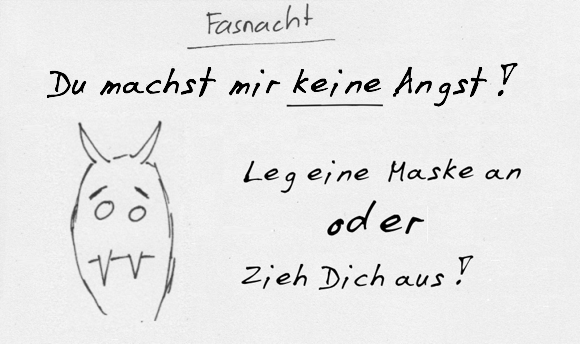 Fasnacht
Du machst mir keine Angst!
Leg eine Maske an
oder
Zieh Dich aus!